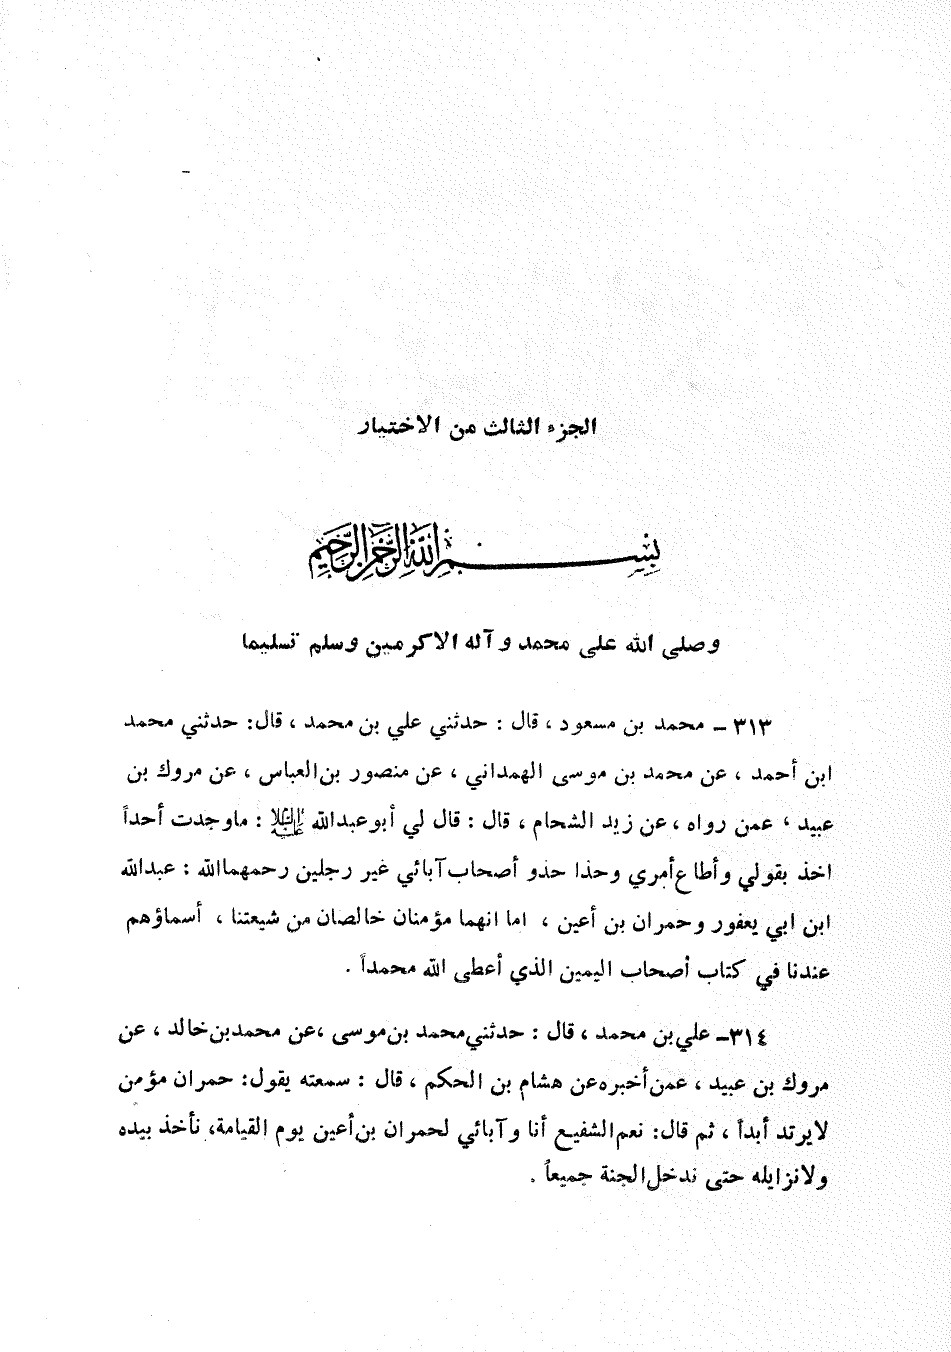 الجزء الثالث من الاختيار
بسم الله الرحمن الرحيم
وصلى الله على محمد وآله الاكرمين وسلم تسليما
٣١٣ – محمد بن مسعود ، قال : حدثني علي بن محمد ، قال: حدثني محمد
ابن أحمد ، عن محمد بن موسى الهمداني ، عن منصور بن العباس ، عن مروك بن
عبيد ، عمن رواه ، عن زيد الشحام ، قال : قال لي أبو عبدالله عليه السلام : ماوجدت أحداً
اخذ بقولي وأطاع أمري وحذا حذو أصحاب آبائي غير رجلين رحمهما الله : عبدالله
ابن ابي يعفور وحمران بن أعين ، اما انهما مؤمنان خالصان من شيعتنا ، أسماؤهم
عندنا في كتاب أصحاب اليمين الذي أعطى الله محمداً .
٣١٤– علي بن محمد ، قال : حدثني محمد بن موسى ،عن محمد بن خالد ، عن
مروك بن عبيد ، عمن أخبره عن هشام بن الحكم ، قال : سمعته يقول: حمران مؤمن
لايرتد أبداً ، ثم قال: نعم الشفيع أنا وآبائي لحمران بن أعين يوم القيامة، نأخذ بيده
ولانزايله حتى ندخل الجنة جميعاً .